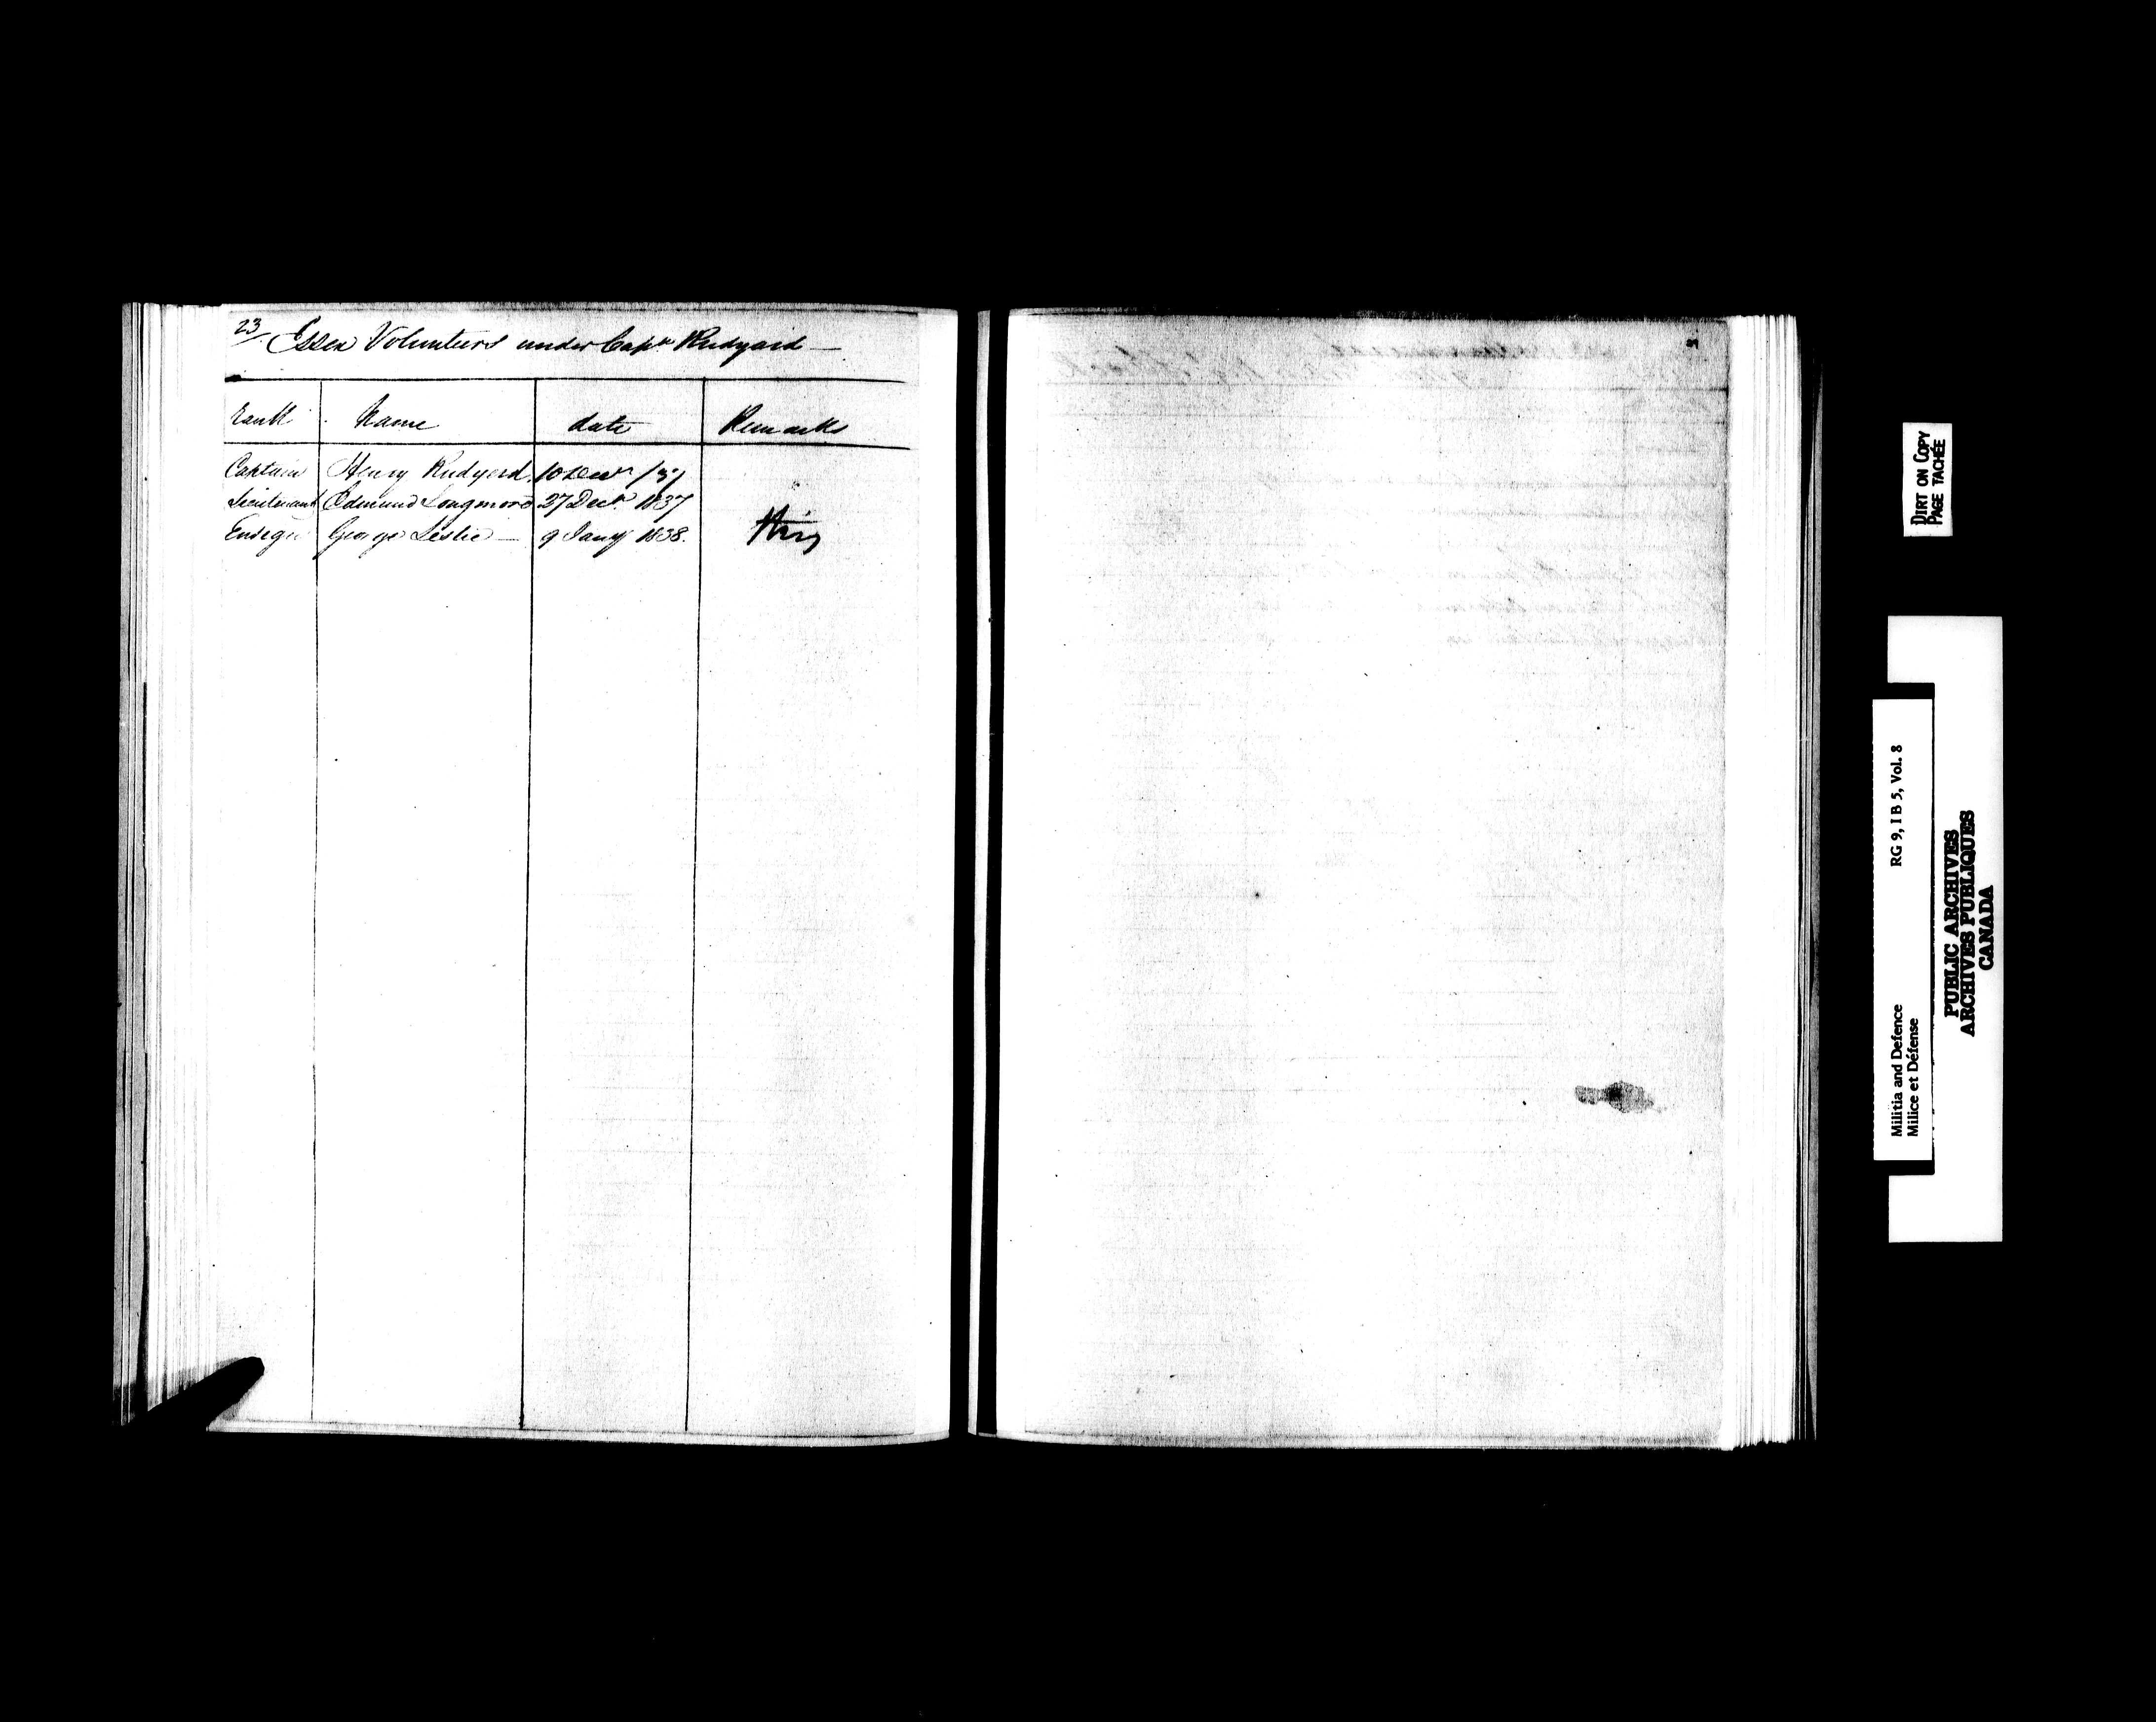 23
Essex Volunteers under Capt Rudyard —
Rank Name date Remarks
Captain Henry Rudyerd 10 Decr /37
Lieutenant Edmund Longmore 27 Decr 1837
Ensign George Leslie — 9 Jany 1838.
DIRT ON COPY
PAGE TACHÉE
Militia and Defence RG 9, I B 5, Vol. 8
Milice et Défense
PUBLIC ARCHIVES
ARCHIVES PUBLIQUES
CANADA